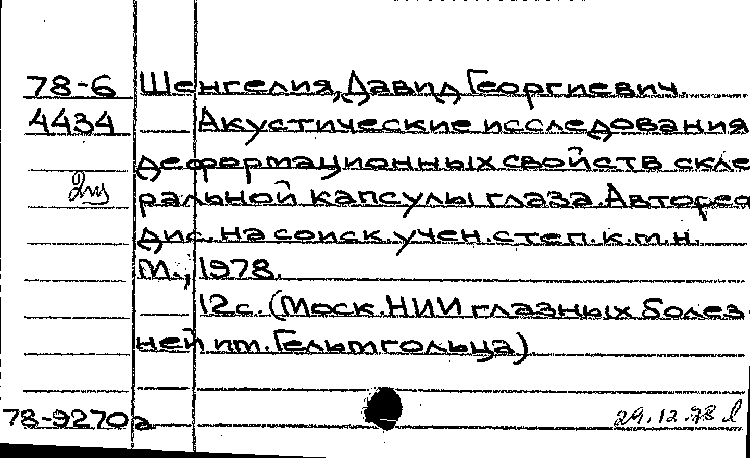 78-6 Шенгелия, Давид Георгиевич.
4434 Акустические исследования
деформационных свойств скле
ральной капсулы глаза. Автореф
дис. на соиск. учен. степ. к.т.н.
М., 1978.
12с. (Моск. НИИ глазных болез
ней им. Гельмгольца)
78-9270а 29.12.78